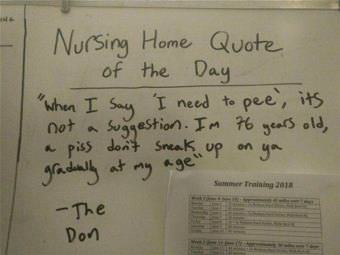 Nursing Home Quote
of the Day
"When I say 'I need to pee', its
not a suggestion. I'm 76 years old,
a piss don't sneak up on ya
gradually at my age"
- The
Don
Summer Training 2018